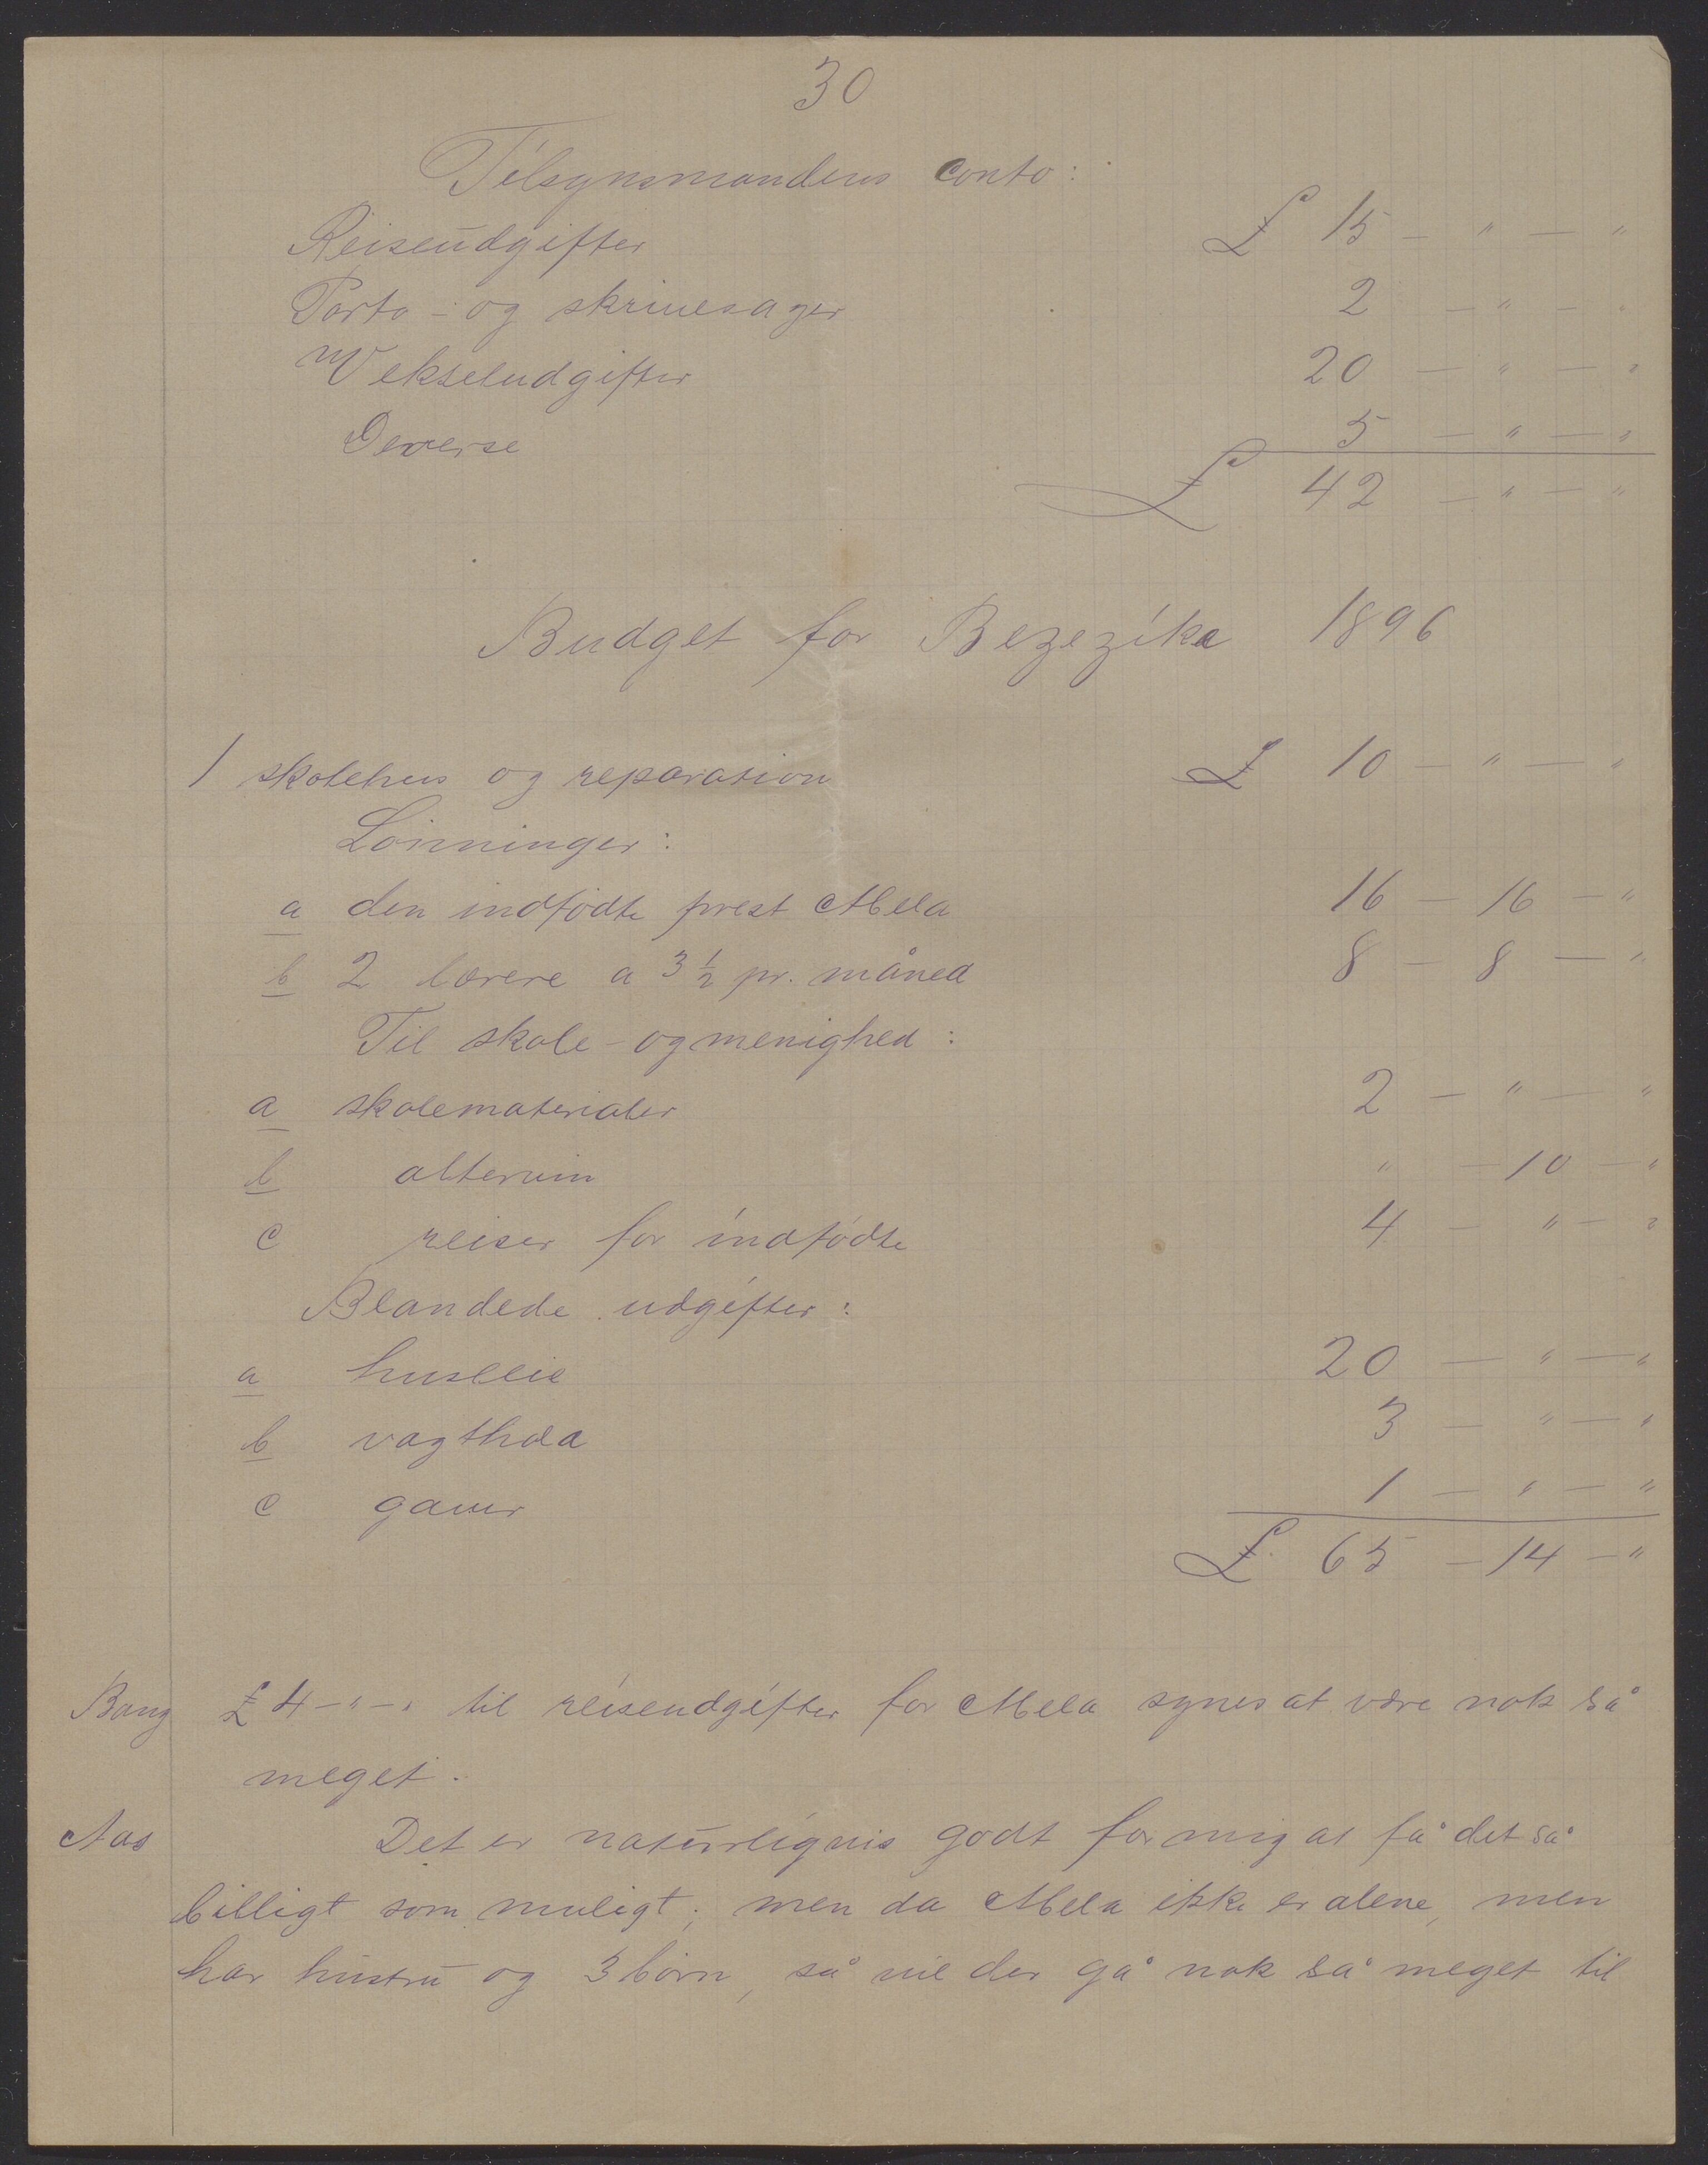 30
Tilsynsmandens conto:
Reiseudgifter £ 15 – " – "
Porto- og skrivesager 2 – " – "
Vekseludgifter 20 – " – "
Deverse 5 – " – "
£ 42 – " – "
Budget for Bezezika 1896
1 skolehus og reparation £ 10 – " – "
Lönninger:
a den indfödte prest Mela 16 – 16 – "
b 2 lærere a 3 1/2 pr. måned 8 – 8 – "
Til skole- og menighed:
a skolematerialer 2 – " – "
b altervin " – 10 – "
c reiser for indfödte 4 – " – "
Blandede udgifter:
a husleie 20 – " – "
b vagthold 3 – " – "
c gaver 1 – " – "
£ 65 – 14 – "
Bang £ 4 – " – " til reiseudgifter for Mela synes at være nok så
meget.
Aas Det er naturligvis godt for mig at få det så
billigt som muligt; men da Mela ikke er alene, men
har hustru og 3 börn, så vil der gå nok så meget til